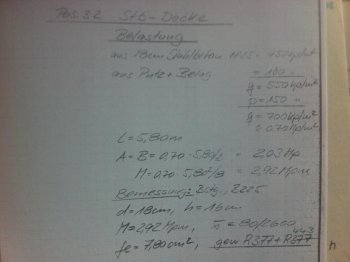 Pos. 32 StB-Decke
Belastung
aus 18cm Stahlbeton = 450 kp/m²
aus Putz + Belag = 100 "
g = 550 kp/m²
p = 150 "
q = 700 kp/m²
= 0,70 Mp/m²
L = 5,80m
A = B = 0,70 · 5,80/2 = 2,03 Mp
M = 0,70 · 5,8²/8 = 2,92 Mpm
Bemessung:
d = 18cm, h = 16cm
M = 2,92 Mpm,
fe = 7,80 cm², gew R377 + R377